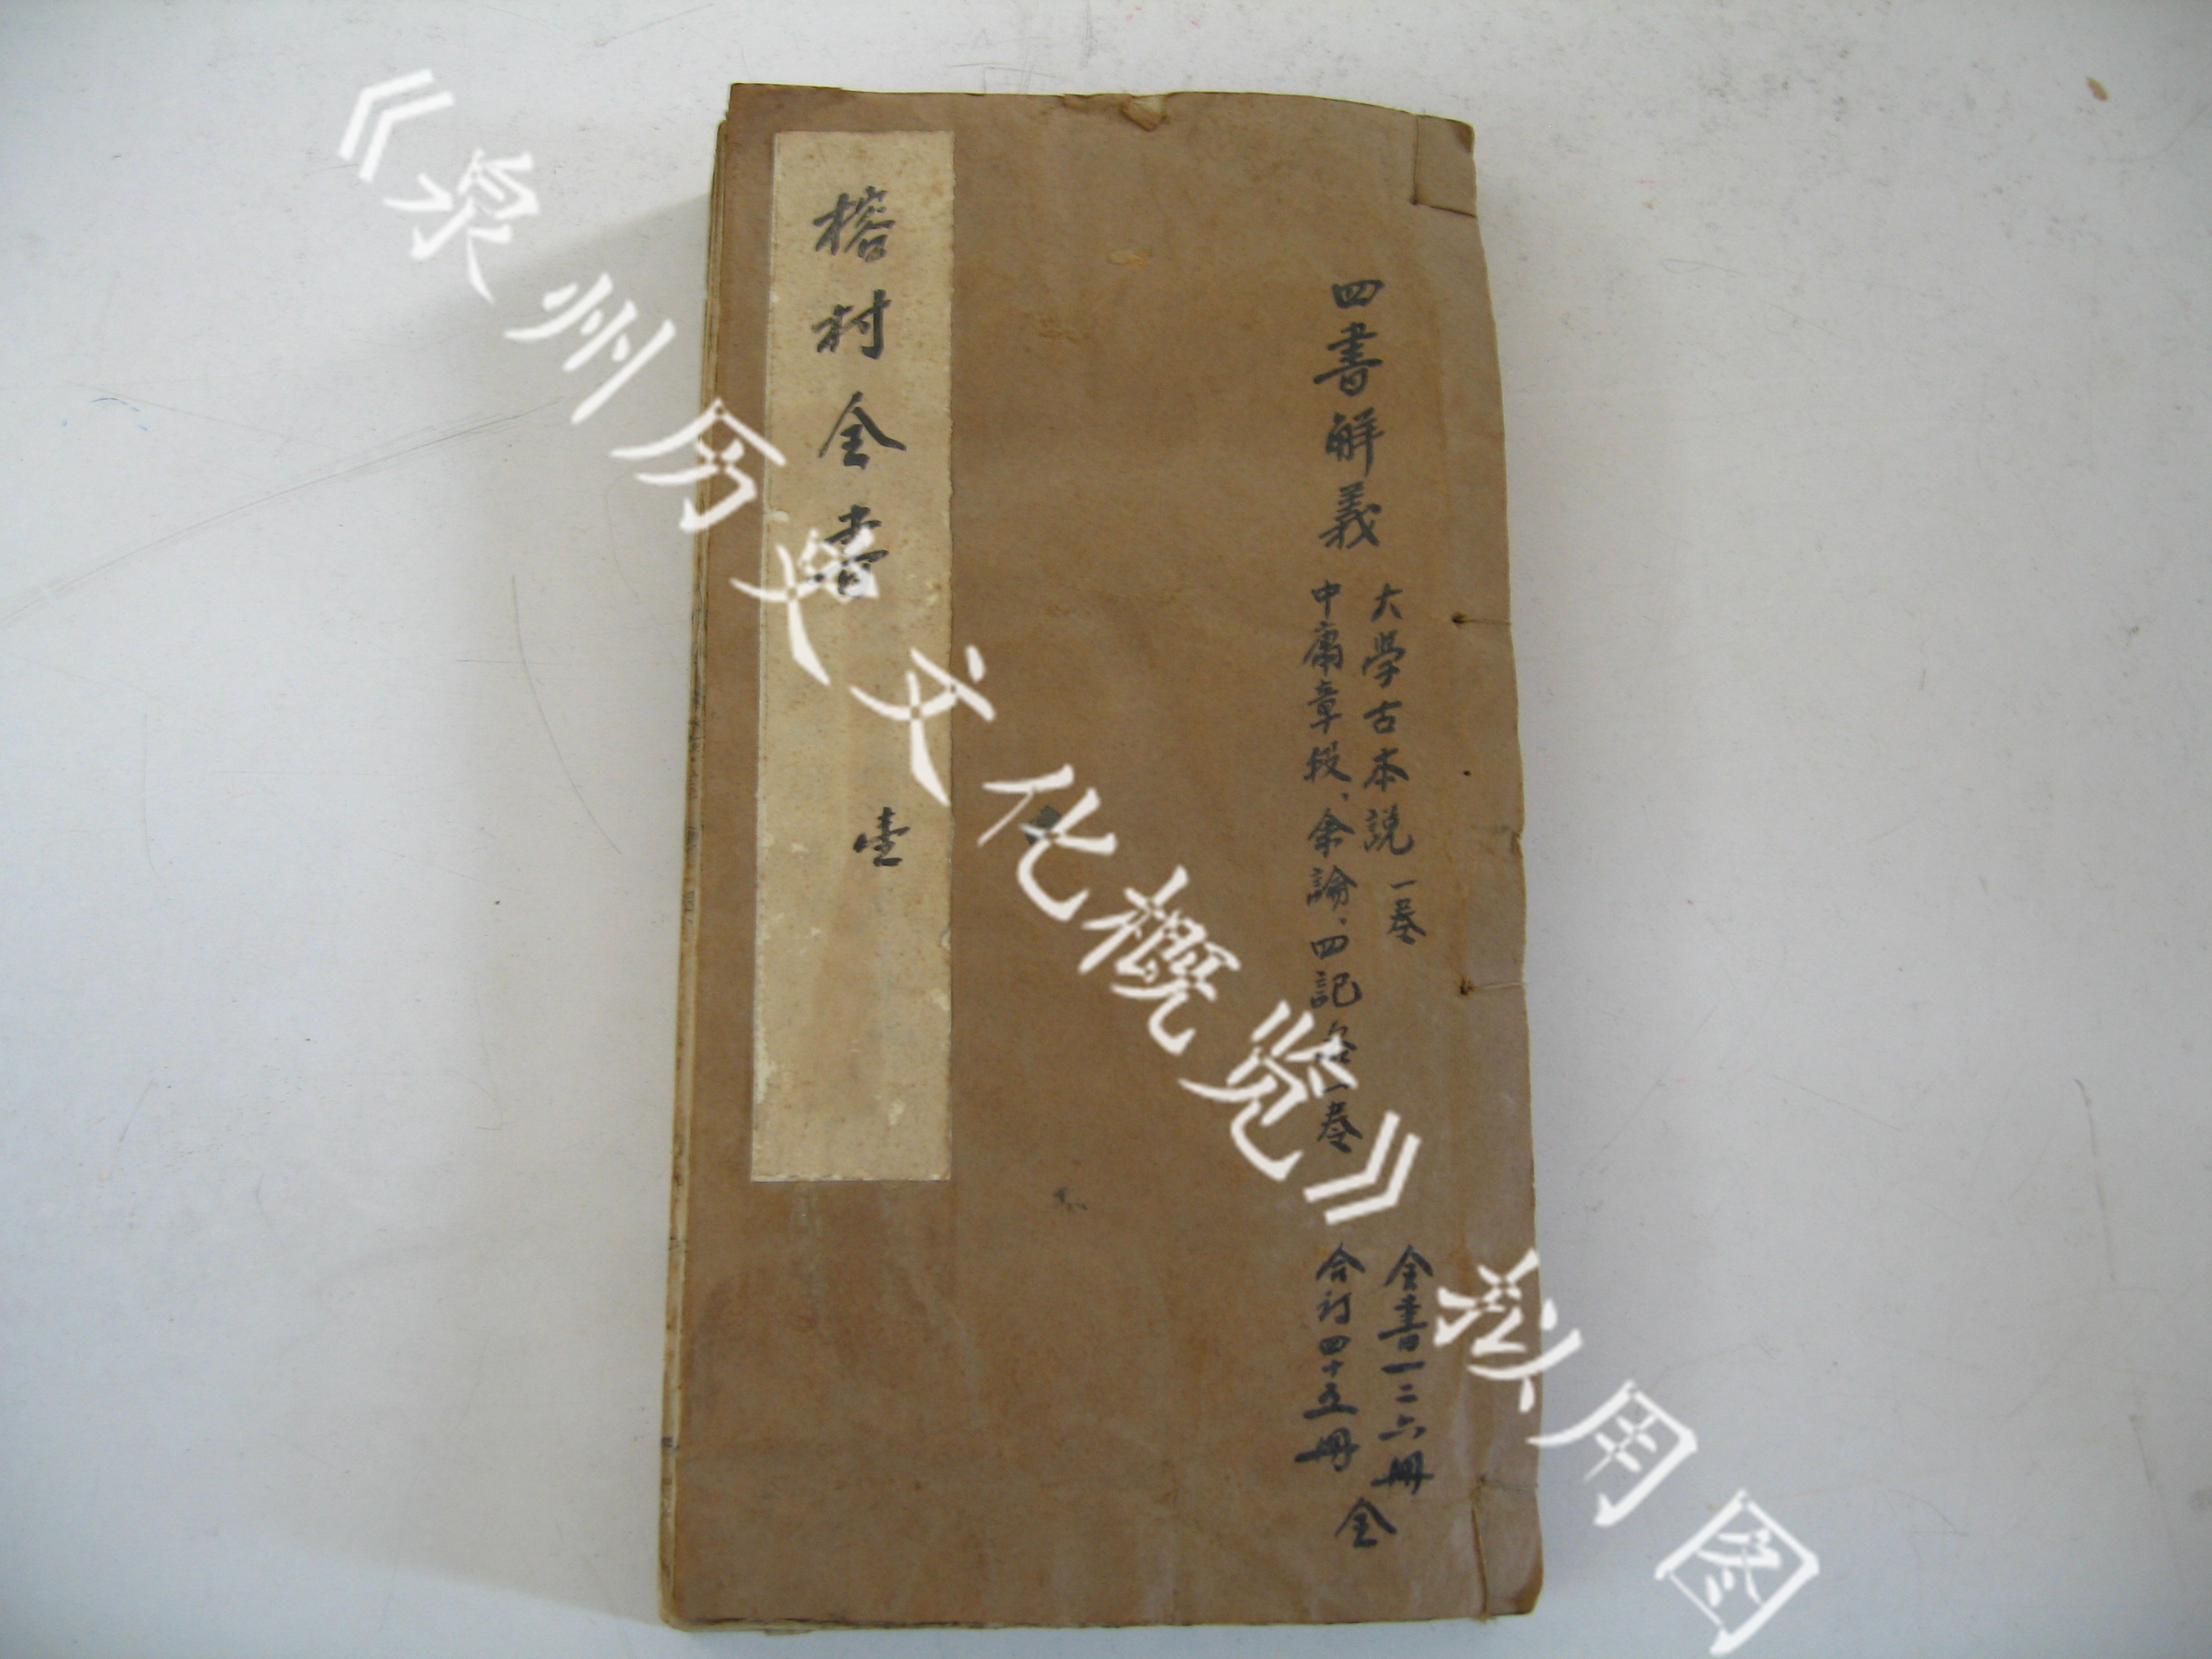 四書解義
大學古本説 一卷
中庸章段、余論、四記各一卷
全書一二六冊
合訂四十五冊
全
榕村全書
壹
《泉州历史文化概览》拟用图